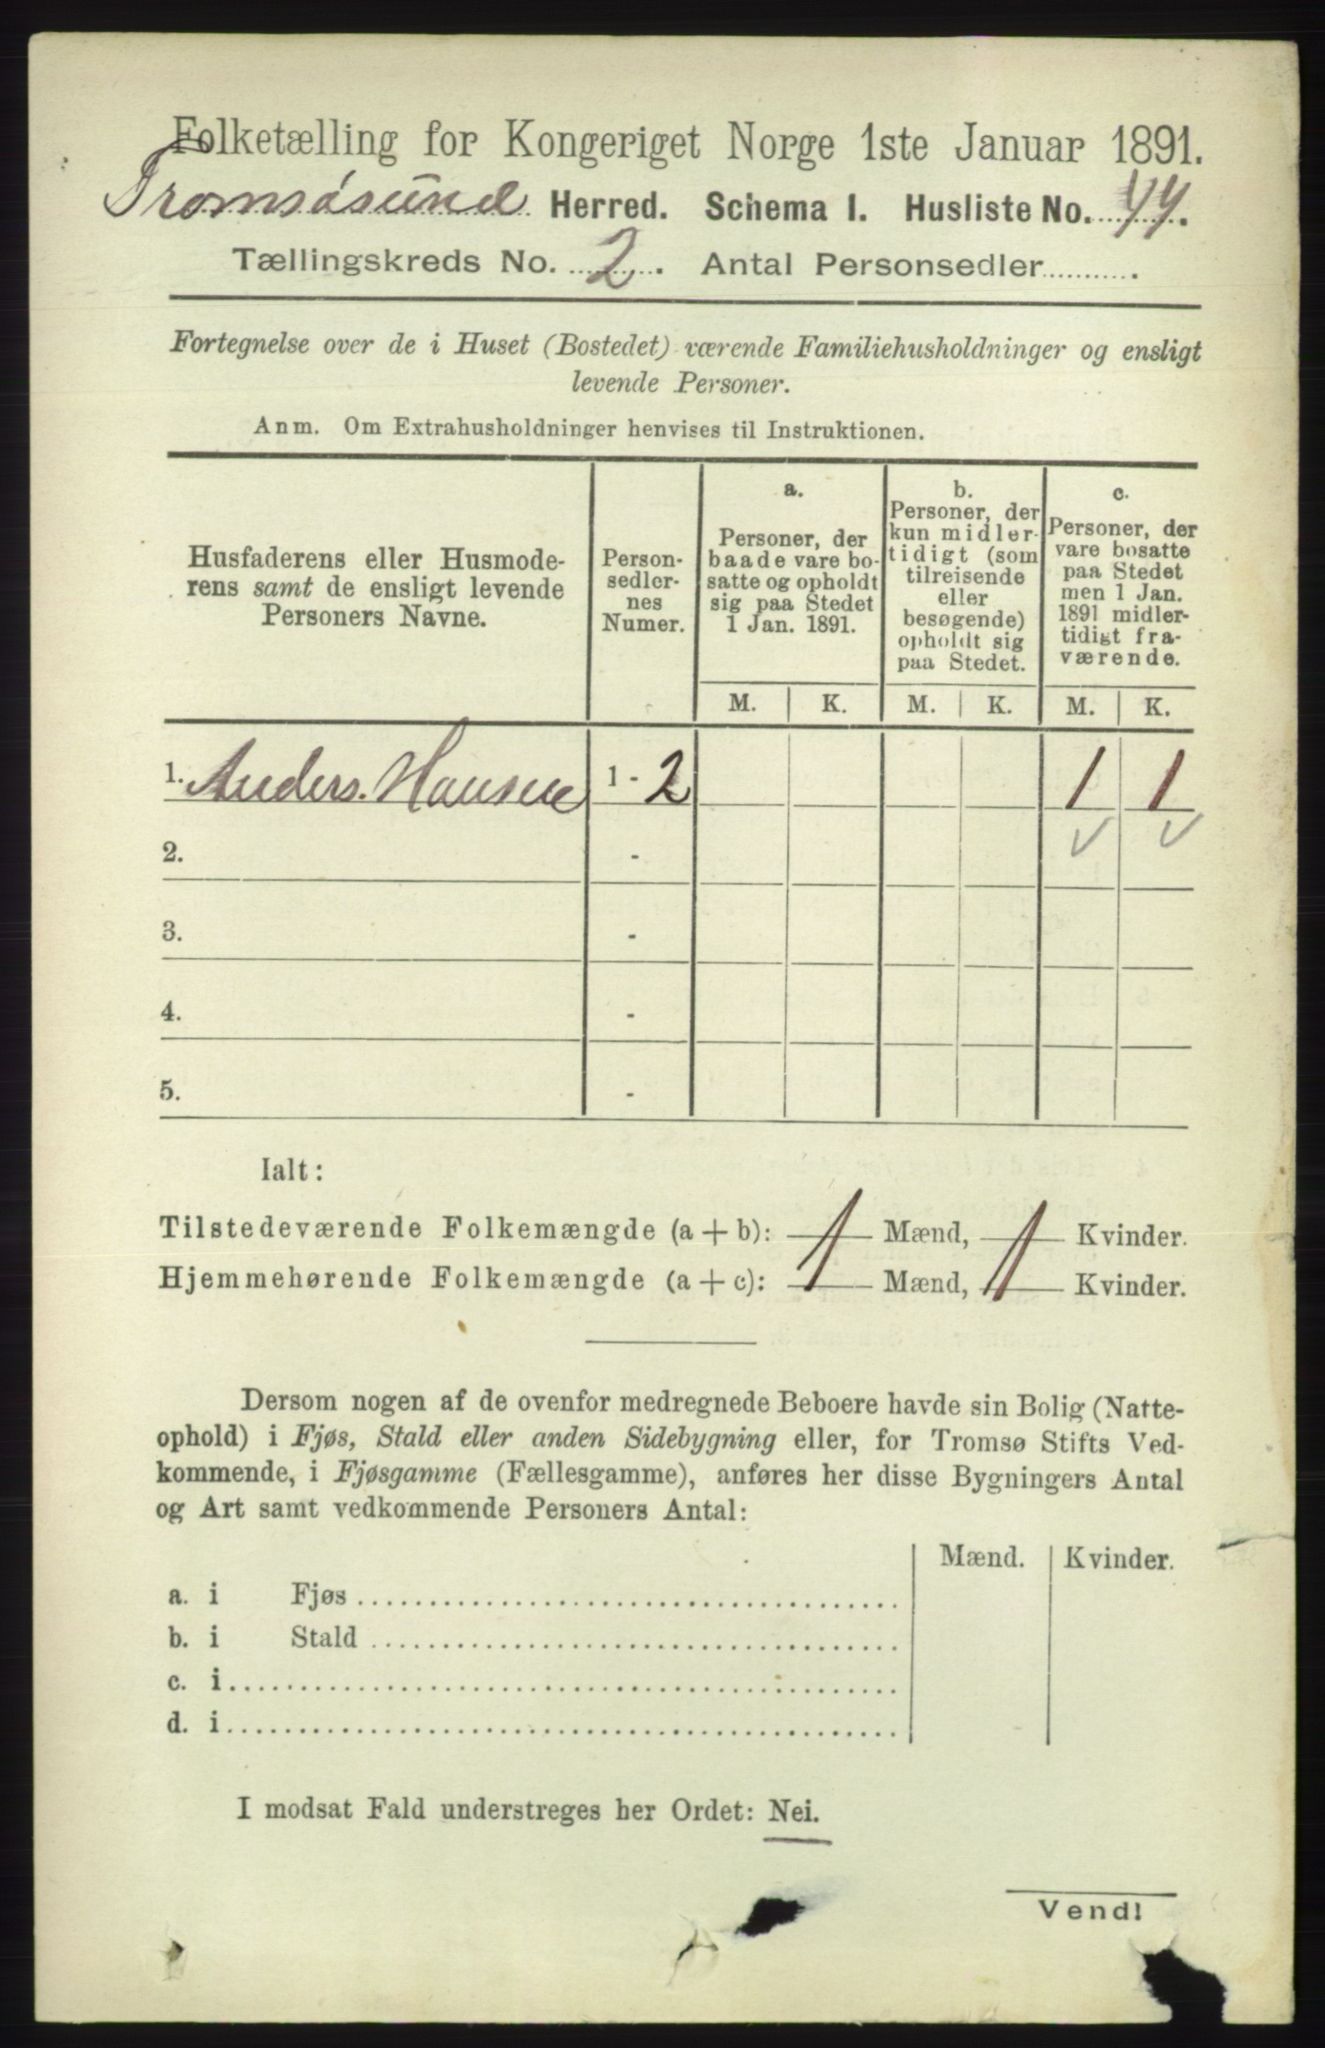 Folketælling for Kongeriget Norge 1ste Januar 1891.
Tromsøsund Herred. Schema I. Husliste No. 44.
Tællingskreds No. 2. Antal Personsedler..........
Fortegnelse over de i Huset (Bostedet) værende Familiehusholdninger og ensligt
levende Personer.
Anm. Om Extrahusholdninger henvises til Instruktionen.
Husfaderens eller Husmode-
rens samt de ensligt levende
Personers Navne.
Person-
sedler-
nes
Numer.
a.
Personer, der
baade vare bo-
satte og opholdt
sig paa Stedet
1 Jan. 1891.
b.
Personer, der
kun midler-
tidigt (som
tilreisende
eller
besøgende)
opholdt sig
paa Stedet.
c.
Personer, der
vare bosatte
paa Stedet
men 1 Jan.
1891 midler-
tidigt fra-
værende.
M. K. M. K. M. K.
1. Anders. Hansen 1 - 2 1 1
2. - ✓ ✓
3. -
4. -
5. -
Ialt:
Tilstedeværende Folkemængde (a + b): 1 Mænd, 1 Kvinder.
Hjemmehørende Folkemængde (a + c): 1 Mænd, 1 Kvinder.
Dersom nogen af de ovenfor medregnede Beboere havde sin Bolig (Natte-
ophold) i Fjøs, Stald eller anden Sidebygning eller, for Tromsø Stifts Ved-
kommende, i Fjøsgamme (Fællesgamme), anføres her disse Bygningers Antal
og Art samt vedkommende Personers Antal:
Mænd. Kvinder.
a. i Fjøs
b. i Stald
c. i
d. i
I modsat Fald understreges her Ordet: Nei.
Vend!